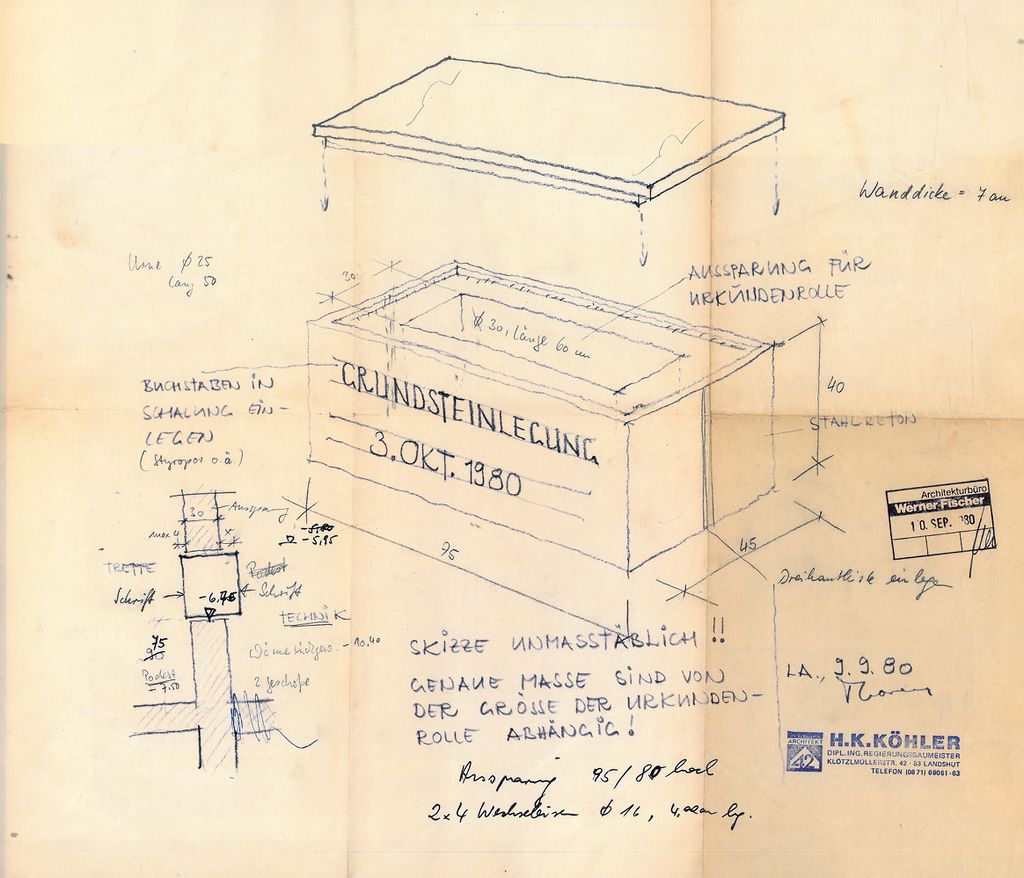 Wanddicke = 7 cm
Urne ϕ 25
lang 50
30
AUSSPARUNG FÜR
URKUNDENROLLE
ϕ 30, Länge 60 cm
BUCHSTABEN IN
SCHALUNG EIN-
LEGEN
(Styropor o.ä.)
GRUNDSTEINLEGUNG
3. OKT. 1980
40
STAHLBETON
75
45
Dreikantleiste einlegen
Architekturbüro
Werner Fischer
10. SEP. '80
30
Aussparung
max 4
-5,80
-5,95
TREPPE
Podest
Schrift
-6,75
Schrift
TECHNIK
75
90
Podest
-7,50
-10.40
2 geschoße
SKIZZE UNMASSTÄBLICH !!
GENAUE MASSE SIND VON
DER GRÖSSE DER URKUNDEN-
ROLLE ABHÄNGIG!
LA., 9.9.80
Aussparung 95/80 hoch
2x4 Wechseleisen ϕ 16, lg.
ARCHITEKT
42
H.K.KÖHLER
DIPL.ING. REGIERUNGSBAUMEISTER
KLÖTZLMÜLLERSTR. 42 · 83 LANDSHUT
TELEFON (0871) 69061-63